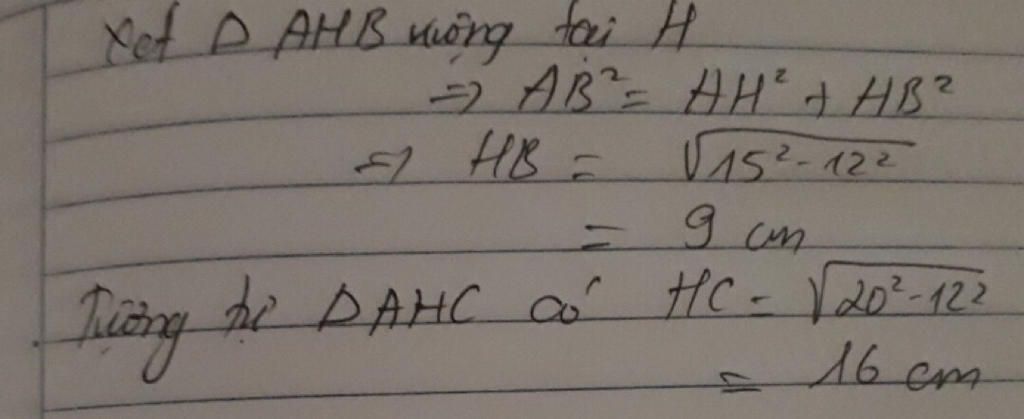 Xét Δ AHB vuông tại H
=> AB² = AH² + HB²
=> HB = √15² - 12²
= 9 cm
Tương tự ΔAHC có HC = √20² - 12²
= 16 cm